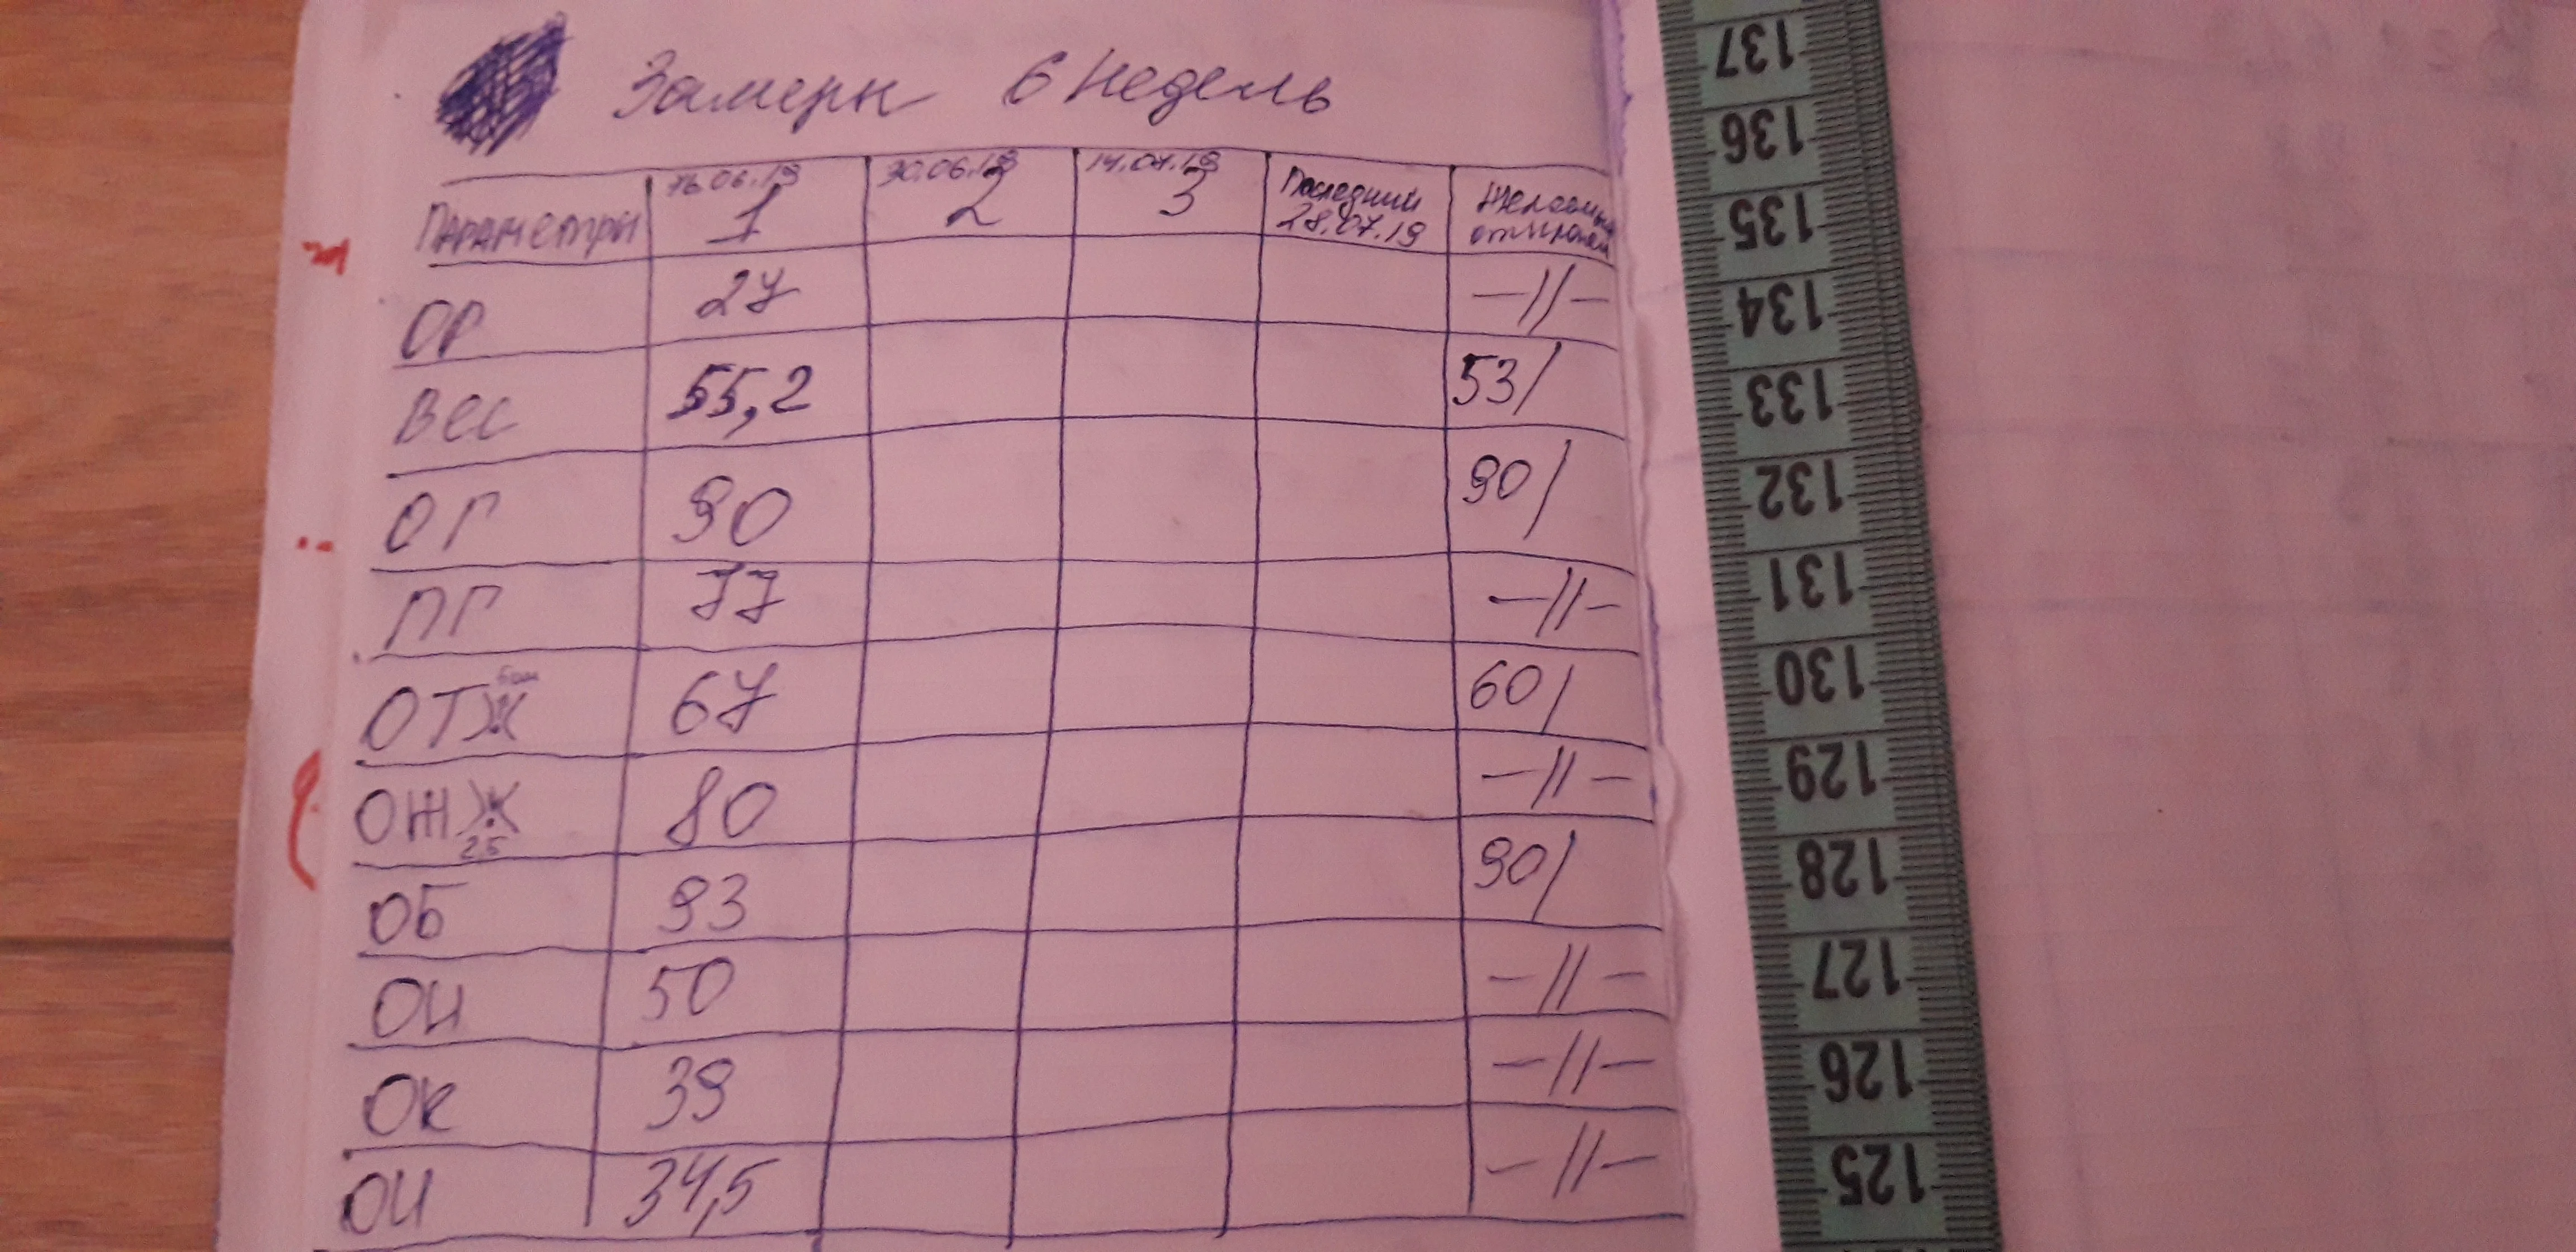 Замеры 6 недель
Параметры 16.06.19 1 30.06.19 2 14.07.19 3 Последний 28.07.19
ОР 27 —//—
Вес 55,2 53/
ОГ 90 90/
ПГ 77 —//—
ОТЖ 67 60/
ОЖЖ 25 80 —//—
ОБ 93 90/
ОИ 50 —//—
ОК 39 —//—
ОИ 34,5 —//—
137
136
135
134
133
132
131
130
129
128
127
126
125